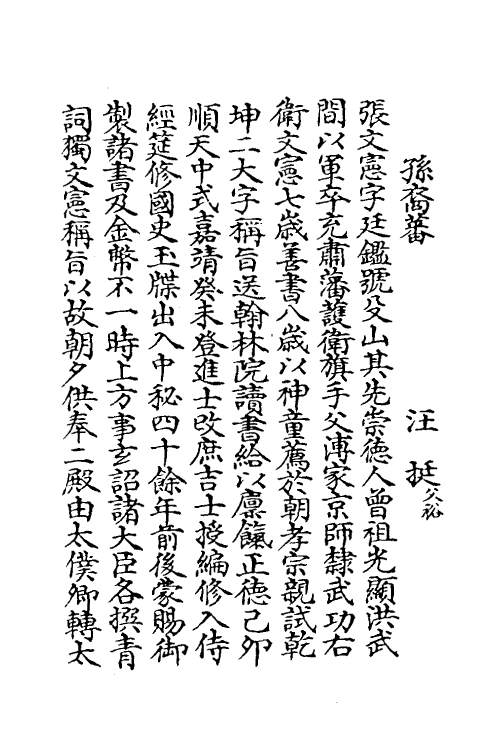 孫裔蕃　汪　挺父裕
張文憲字廷鑑號殳山其先崇德人曾祖光顯洪武
間以軍卒充肅藩護衛旗手父溥家京師隸武功右
衛文憲七歲善書八歲以神童薦於朝孝宗親試乾
坤二大字稱旨送翰林院讀書給以廩餼正德己卯
順天中式嘉靖癸未登進士改庶吉士授編修入侍
經筵修國史玉牒出入中秘四十餘年前後蒙賜御
製諸書及金幣不一時上方事玄詔諸大臣各撰青
詞獨文憲稱旨以故朝夕供奉二殿由太僕卿轉太